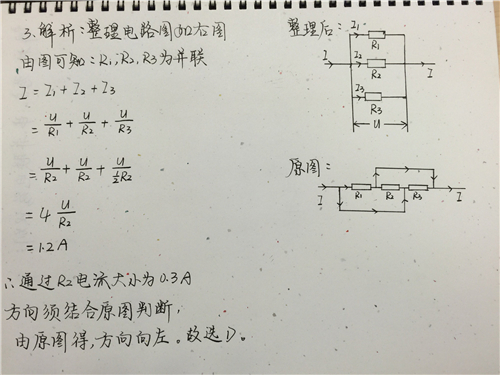 3.解析:整理电路图如右图
由图可知:R1,R2,R3为并联
I=I1+I2+I3
=U/R1+U/R2+U/R3
=U/R2+U/R2+U/½R2
=4U/R2
=1.2A
∴通过R2电流大小为0.3A
方向须结合原图判断,
由原图得,方向向左。故选D。
整理后:
I1
R1
I I2 I
R2
I3
R3
U
原图:
R1 R2 R3
I I